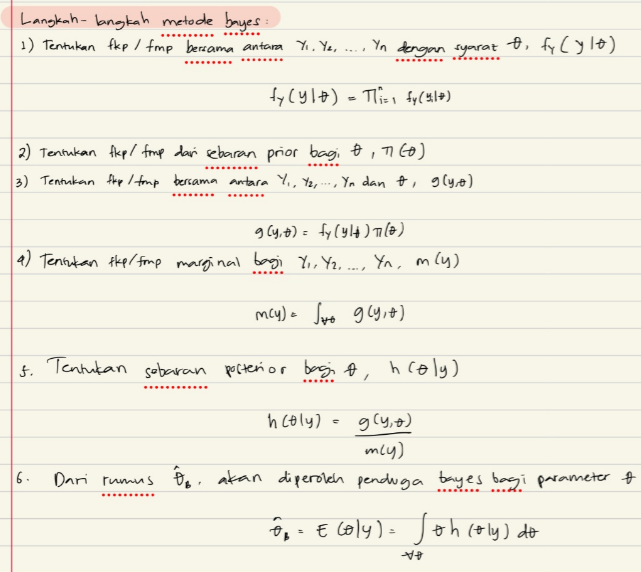 Langkah-langkah metode bayes:
1) Tentukan fkp/fmp bersama antara Y₁, Y₂, ..., Yn dengan syarat θ, f_Y(y|θ)
f_Y(y|θ) = Πⁿᵢ₌₁ f_Y(yᵢ|θ)
2) Tentukan fkp/fmp dari sebaran prior bagi θ, π(θ)
3) Tentukan fkp/fmp bersama antara Y₁, Y₂, ..., Yn dan θ, g(y,θ)
g(y,θ) = f_Y(y|θ) π(θ)
4) Tentukan fkp/fmp marginal bagi Y₁, Y₂, ..., Yn, m(y)
m(y) = ∫∀θ g(y,θ)
5. Tentukan sebaran posterior bagi θ, h(θ|y)
h(θ|y) = g(y,θ)
m(y)
6. Dari rumus θ̂_B, akan diperoleh penduga bayes bagi parameter θ
θ̂_B = E(θ|y) = ∫∀θ θ h(θ|y) dθ